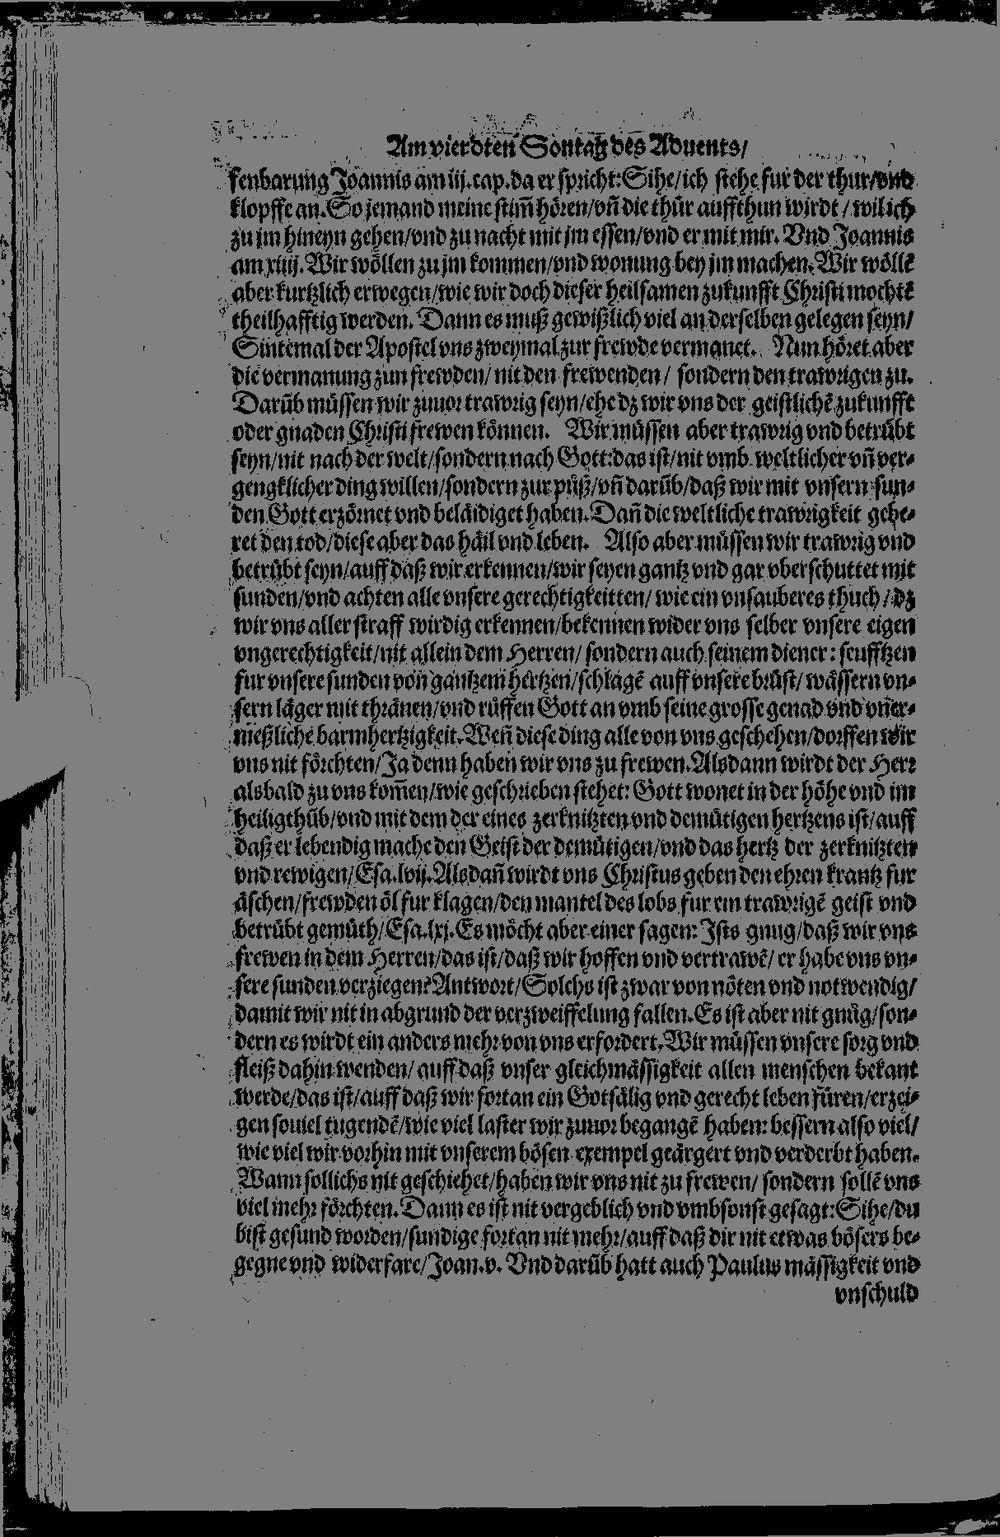 Am vierdten Sontag des Aduents/
fenbarung Joannis am iij. cap. da er spricht: Sihe/ich stehe fur der thur/vnd
klopffe an. So jemand meine stim̃ hören/vñ die thür auffthun wirdt/wil ich
zu jm hineyn gehen/vnd zu nacht mit jm essen/vnd er mit mir. Vnd Joannis
am xiiij. Wir wöllen zu jm kommen/vnd wonung bey jm machen. Wir wöllē
aber kurtzlich erwegen/wie wir doch dieser heilsamen zukunfft Christi mochtē
theilhafftig werden. Dann es muß gewißlich viel an derselben gelegen seyn/
Sintemal der Apostel vns zweymal zur frewde vermanet. Nun höret aber
die vermanung zun frewden/nit den frewenden/ sondern den trawrigen zu.
Darūb müssen wir zuuor trawrig seyn/ehe dz wir vns der geistlichē zukunfft
oder gnaden Christi frewen können. Wir müssen aber trawrig vnd betrübt
seyn/nit nach der welt/sondern nach Gott: das ist/nit vmb weltlicher vñ ver-
gengklicher ding willen/sondern zur püß/vñ darūb/daß wir mit vnsern sun-
den Gott erzörnet vnd beläidiget haben. Dañ die weltliche trawrigkeit gebe-
ret den tod/diese aber das häil vnd leben. Also aber müssen wir trawrig vnd
betrübt seyn/auff daß wir erkennen/wir seyen gantz vnd gar vberschuttet mit
sunden/vnd achten alle vnsere gerechtigkeitten/ wie ein vnsauberes thuch/dz
wir vns aller straff wirdig erkennen/bekennen wider vns selber vnsere eigen
vngerechtigkeit/nit allein dem Herren/ sondern auch seinem diener: seufftzen
fur vnsere sunden von gantzem hertzen/schlagē auff vnsere brüst/wässern vn-
sern läger mit thränen/vnd rüffen Gott an vmb seine grosse genad vnd vner-
mäßliche barmhertzigkeit. Weñ diese ding alle von vns geschehen/dorffen wir
vns nit förchten/Ja denn haben wir vns zu frewen. Alsdann wirdt der Herr
alsbald zu vns kom̃en/wie geschrieben stehet: Gott wonet in der höhe vnd im
heiligthūb/vnd mit dem der eines zerknitzten vnd demütigen hertzens ist/auff
daß er lebendig mache den Geist der demütigen/vnd das hertz der zerknitzten
vnd rewigen/Esa. lvij. Als dañ wirdt vns Christus geben den ehren krantz fur
äschen/frewden öl fur klagen/den mantel des lobs fur ein trawrigē geist vnd
betrübt gemüth/Esa. lxj. Es möcht aber einer sagen: Ists gnug/daß wir vns
frewen in dem Herren/das ist/daß wir hoffen vnd vertrawē/ er habe vns vn-
sere sunden verziegen? Antwort/Solchs ist zwar von nöten vnd notwendig/
damit wir nit in abgrund der verzweiffelung fallen. Es ist aber nit gnůg/son-
dern es wirdt ein anders mehr von vns erfordert. Wir müssen vnsere sorg vnd
fleiß dahin wenden/ auff daß vnser gleichmässigkeit allen menschen bekant
werde/das ist/auff daß wir fortan ein Gotsälig vnd gerecht leben füren/erzei-
gen souiel tugendē/wie viel laster wir zuuor begangē haben: bessern also viel/
wie viel wir vorhin mit vnserem bösen exempel geärgert vnd verderbt haben.
Wann sollichs nit geschiehet/haben wir vns nit zu frewen/ sondern sollē vns
viel mehr förchten. Dann es ist nit vergeblich vnd vmbsonst gesagt: Sihe/du
bist gesund worden/sundige fortan nit mehr/auff daß dir nit etwas bösers be-
gegne vnd widerfare/Joan. v. Vnd darūb hatt auch Paulus mässigkeit vnd
vnschuld